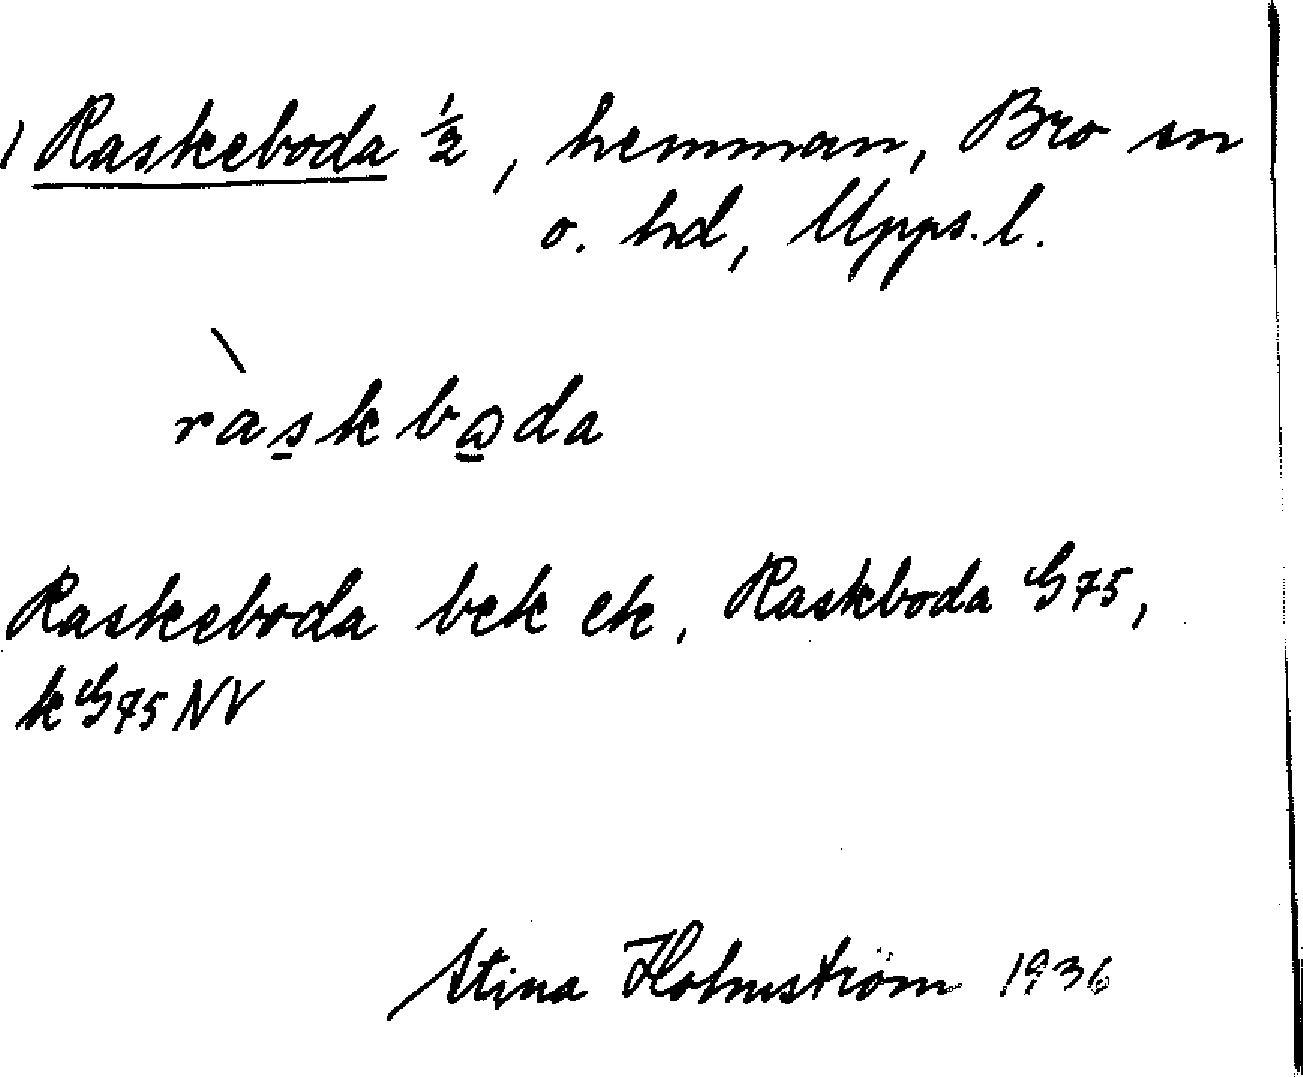 1 Raskeboda ½, hemman, Bro sn
o. hd, Upps. l.
ràskbωda
Raskeboda bek ek, Raskboda G75,
kG75NV
Stina Holmström 1936